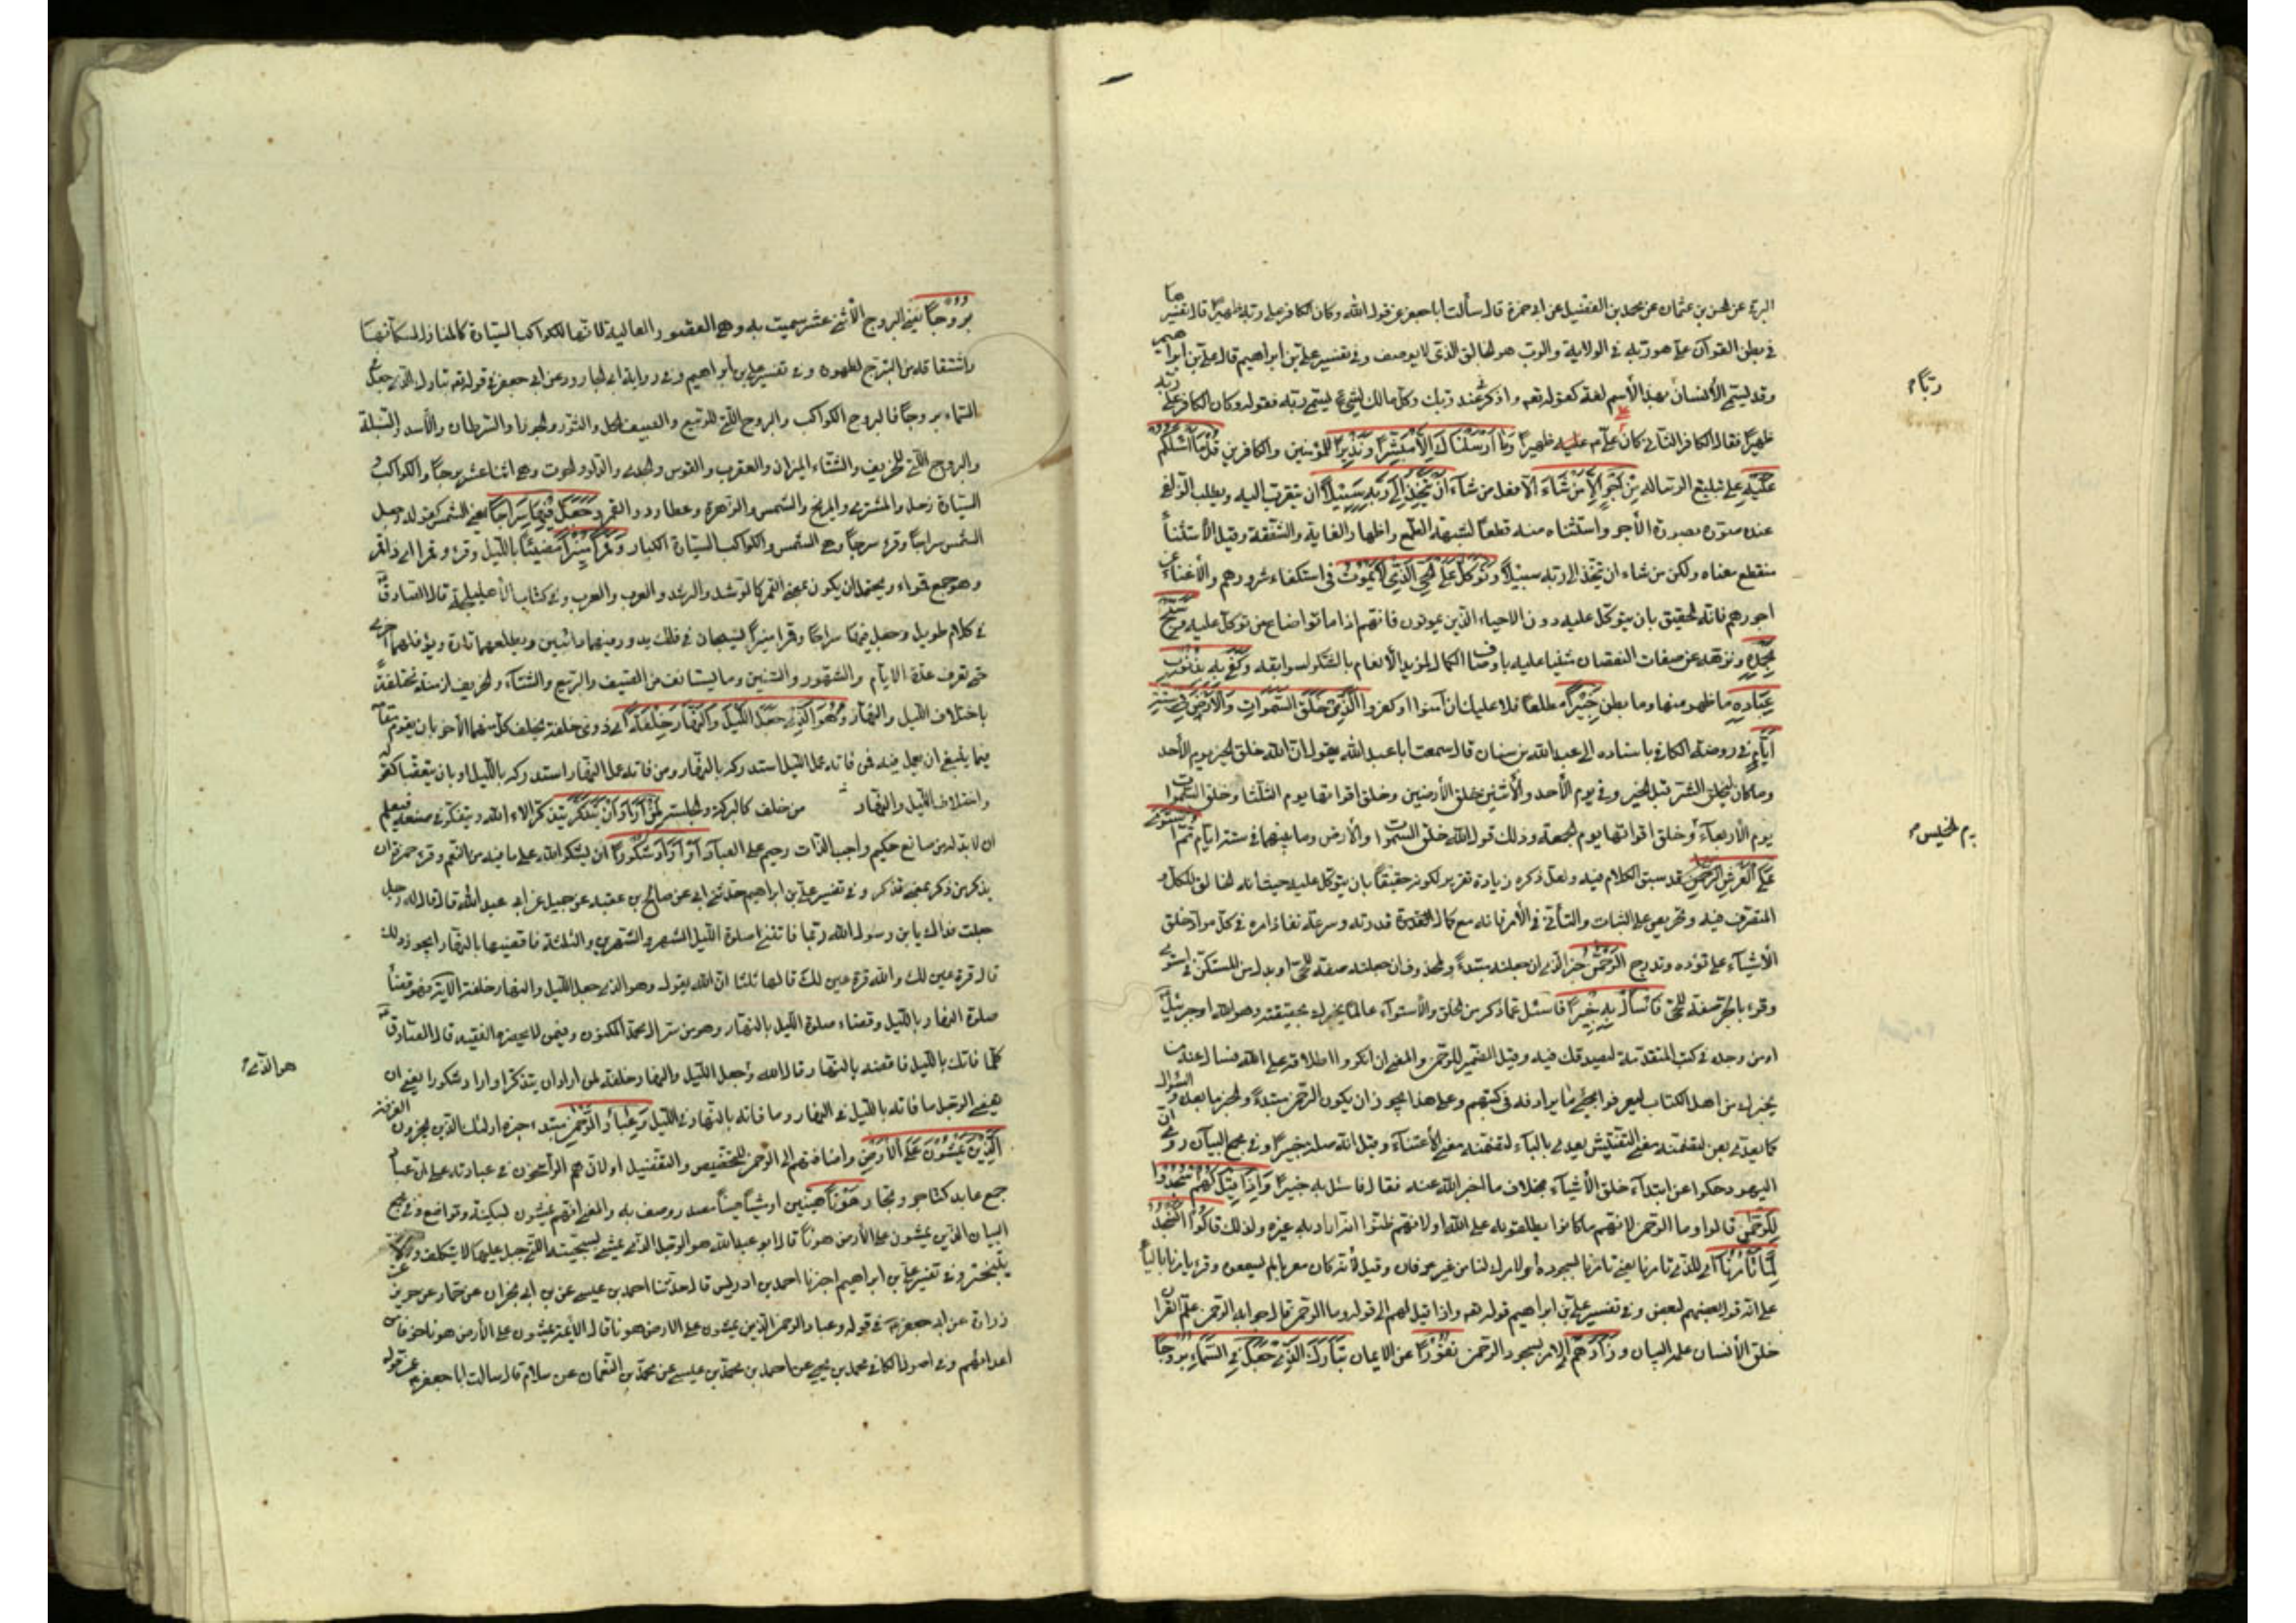 البرقي عن الحسن بن عثمان عن محمد بن الفضيل عن ابي حمزة قال سألت ابا جعفر عن قول الله وكان الكافر على ربه ظهيرا قال تفسيرها
في بطن القرآن علي هو ربه في الولاية والرب هو الخالق الذي لا يوصف وفي تفسير علي بن ابراهيم قال علي بن ابراهيم
وقد يسمى الأنسان بهذا الأسم لغة كقوله تعه واذكرني عند ربك وكل مالك لشيء يسمى ربه فقوله وكان الكافر على ربه
ربا م
ظهيرًا فقال الكافر الثاني كان على م عليه ظهيرًا وَمَا أَرْسَلْنَاكَ إِلَّا مُبَشِّرًا وَنَذِيرًا للمؤمنين والكافرين قُلْ مَا أَسْئَلُكُمْ
عَلَيْهِ على تبليغ الرسالة مِنْ أَجْرٍ إِلَّا مَنْ شَاءَ الا فعل من شاء أَنْ يَتَّخِذَ إِلَى رَبِّهِ سَبِيلًا ان يتقرب اليه ويطلب الزلفى
عنده فصوره بصورة الأجر واستثناه منه قطعا لشبهة الطمع واظهارا لغاية الشفقة وقيل الأستثناء
منقطع معناه ولكن من شاء ان يتخذ الى ربه سبيلا وَتَوَكَّلْ عَلَى الْحَيِّ الَّذِي لَا يَمُوتُ في استكفاء شرورهم والأغناء عن
اجورهم فانه الحقيق بان يتوكل عليه دون الاحياء الذين يموتون فانهم اذا ماتوا ضاع من توكل عليهم وَسَبِّحْ
بِحَمْدِهِ ونزهه عن صفات النقصان مثنيا عليه باوصاف الكمال لمزيد الأنعام بالشكر لسوابقه وَكَفَى بِهِ بِذُنُوبِ
عِبَادِهِ ما ظهر منها وما بطن خَبِيرًا مطلعا فلا عليك ان آمنوا او كفروا الَّذِي خَلَقَ السَّمَوَاتِ وَالْأَرْضَ فِي سِتَّةِ
أَيَّامٍ في روضة الكافي باسناده الى عبد الله بن سنان قال سمعت ابا عبد الله يقول ان الله خلق الخير يوم الأحد
وما كان ليخلق الشر قبل الخير وفي يوم الأحد والأثنين خلق الأرضين وخلق اقواتها يوم الثلثا وخلق السموات
يوم الأربعاء وخلق اقواتها يوم الجمعة وذلك قول الله خلق السموات والأرض وما بينهما في ستة ايام ثُمَّ اسْتَوَى
يوم الخميس م
عَلَى الْعَرْشِ الرَّحْمَنُ قد سبق الكلام فيه ولعل ذكره زيادة تقرير لكونه حقيقا بان يتوكل عليه حيث انه الخالق للكل و
المتصرف فيه وتحريص على الثبات والتأني في الأمر فانه مع كمال قدرته وسرعة نفاذ امره في كل مراد خلق
الأشياء على تؤده وتدرج الرحمن خبر الذي ان جعلته مبتدءً ولمحذوف ان جعلته صفة للحي او بدل من المستكن في استوى
وقرء بالجر صفة للحي فَاسْأَلْ بِهِ خَبِيرًا فاسئل عما ذكر من الخلق والأستواء عالما يخبرك بحقيقته وهو الله او جبرئيل
او من وجده في كتب المتقدمة ليصدقك فيه وقيل الضمير للرحمن والمعنى ان انكروا اطلاقه على الله فسال عنه من
يخبرك من اهل الكتاب ليعرفوا مجئ ما يرادفه في كتبهم وعلى هذا يجوز ان يكون الرحمن مبتدءً والخبر ما بعده والسؤال
كما يعدى بعن لتضمنه معنى التفتيش يعدى بالباء لتضمنه معنى الأعتناء وقيل انه صلة خبيرا وفي مجمع البيان روي ان
اليهود حكوا عن ابتداء خلق الأشياء بخلاف ما اخبر الله عنه فقال فاسئل به خبيرا وَإِذَا قِيلَ لَهُمُ اسْجُدُوا
لِلرَّحْمَنِ قالوا وما الرحمن لانهم ما كانوا يطلقونه على الله اولانهم ظنوا انه اراد به غيره ولذلك قالوا أَنَسْجُدُ
لِمَا تَأْمُرُنَا اي للذي تامرنا يعني تامرنا بسجوده أو لامرك لنا من غير عرفان وقيل لأنه كان معربا لم يسمعوه وقرء يامرنا بالياء
على انه قول بعضهم لبعض وفي تفسير علي بن ابراهيم قوله تعه واذا قيل لهم الى قوله وما الرحمن قال جوابه الرحمن علم القران
خلق الأنسان علمه البيان وَزَادَهُمْ الامر بسجود الرحمن نُفُورًا عن الايمان تَبَارَكَ الَّذِي جَعَلَ فِي السَّمَاءِ بُرُوجًا
بُرُوجًا يعني البروج الأثنى عشر سميت به وهي القصور العالية لانها للكواكب السيارة كالمنازل لسكانها
واشتقاقه من التبرج لظهوره وفي تفسير علي بن ابراهيم وفي رواية ابي الجارود عن ابي جعفر في قوله تعه تبارك الذي جعل في
السماء بروجا فالبروج الكواكب والبروج التي للربيع والصيف الحمل والثور والجوزا والسرطان والأسد والسنبلة
والبروج التي للخريف والشتاء الميزان والعقرب والقوس والجدي والدلو والحوت وهي اثنا عشر برجا والكواكب
السيارة زحل والمشتري والمريخ والشمس والزهرة وعطارد والقمر وَجَعَلَ فِيهَا سِرَاجًا يعني الشمس كقوله وجعل
الشمس سراجا وقرء سرجا وهي الشمس والكواكب السيارة الكبار وَقَمَرًا مُنِيرًا مضيئا بالليل وقرء وقمرا اي ذا قمر
وهو جمع قمراء ويحتمل ان يكون بمعنى القمر كالرشد والرشد والعرب والعرب وفي كتاب الأهليلجة قال الصادق
في كلام طويل وجعل فيها سراجا وقمرا منيرا يسبحان في فلك يدور بهما دائبين ويطلعهما تارة ويؤفلهما اخرى
حتى تعرف عدة الايام والشهور والسنين وما يستانف من الصيف والربيع والشتاء والخريف ازمنة مختلفة
باختلاف الليل والنهار وَهُوَ الَّذِي جَعَلَ اللَّيْلَ وَالنَّهَارَ خِلْفَةً اي ذوى خلفة يخلف كل منهما الأخر بان يقوم مقامه
فيما ينبغي ان يعمل فيه فمن فاته عمل الليل استدركه بالنهار ومن فاته عمل النهار استدركه بالليل او بان يتعقبا كقوله
واختلاف الليل والنهار من خلف كالركبة والجلسة لِمَنْ أَرَادَ أَنْ يَذَّكَّرَ يتذكر الاء الله ويتفكر في صنعه فيعلم
ان لا بد له من صانع حكيم واجب الذات رحيم على العباد أَوْ أَرَادَ شُكُورًا ان يشكر الله على ما فيه من النعم وقرء حمزة ان
يذكر من ذكر بمعنى تذكر وفي تفسير علي بن ابراهيم حدثني ابي عن صالح بن عقبه عن جميل عن ابي عبد الله قال قال له رجل
جعلت فداك يابن رسول الله ربما فاتتني صلوة الليل الشهر والشهرين والثلثة فاقضيها بالنهار ايجوز ذلك
قال قرة عين لك والله قرة عين لك قالها ثلثا ان الله يقول وهو الذي جعل الليل والنهار خلفة الآية فهو قضاء
صلوة النهار بالليل وقضاء صلوة الليل بالنهار وهو من سر ال محمد المكنون وفيمن لا يحضره الفقيه قال الصادق
كلما فاتك بالليل فاقضه بالنهار قال الله وجعل الليل والنهار خلفة لمن اراد ان يتذكر او اراد شكورا يعني ان
هو الذي م
يقضي الرجل ما فاته بالليل في النهار وما فاته بالنهار في الليل وَعِبَادُ الرَّحْمَنِ مبتدء خبره اولئك الذين يجزون الغرفة
الَّذِينَ يَمْشُونَ عَلَى الْأَرْضِ واضافتهم الى الرحمن للتخصيص والتفضيل او لان هم الراسخون في عبادته على ان عباد
جمع عابد كتاجر وتجار هَوْنًا هينين او مشيا هينا مصدر وصف به والمعنى انهم يمشون بسكينة وتواضع وفي مجمع
البيان الذين يمشون على الأرض هونا قال ابو عبد الله هو الرجل الذي يمشي بسجيته التي جبل عليها لا يتكلف ولا
يتبختر وفي تفسير علي بن ابراهيم اخبرنا احمد بن ادريس قال حدثنا احمد بن عيسى عن ابن ابي نجران عن حماد عن حريز عن
زرارة عن ابي جعفر في قوله وعباد الرحمن الذين يمشون على الارض هونا قال الأئمة يمشون على الأرض هونا خوفا من
اعدائهم وفي اصول الكافي محمد بن يحيى عن احمد بن محمد بن عيسى عن محمد بن النعمان عن سلام قال سالت ابا جعفر عن قوله